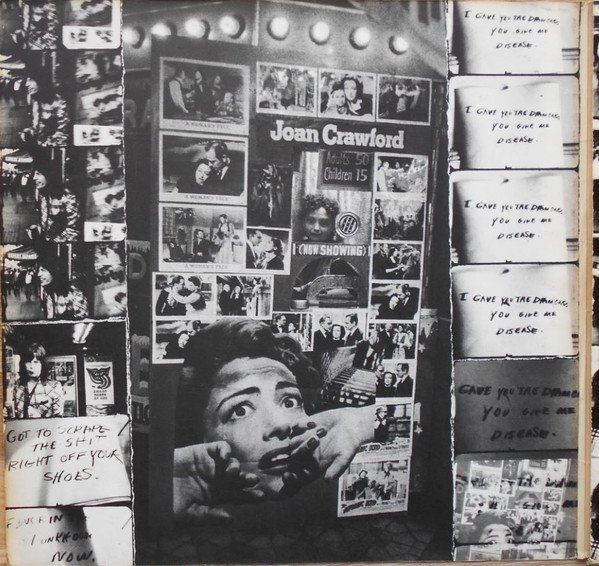 GOT TO SCRAPE
THE SHIT
RIGHT OFF YOUR
SHOES.
NOW.
A WOMAN'S FACE
Joan Crawford
Adults 50
Children 15
A WOMAN'S FACE
(NOW SHOWING)
A WOMAN'S FACE
I GAVE YOU THE DIAMONDS
YOU GIVE ME
DISEASE.
I GAVE YOU THE DIAMONDS
YOU GIVE ME
DISEASE.
I GAVE YOU THE DIAMONDS
YOU GIVE ME
DISEASE.
I GAVE YOU THE DIAMONDS
YOU GIVE ME
DISEASE.
GAVE YOU THE DIAMONDS
YOU GIVE ME
DISEASE.